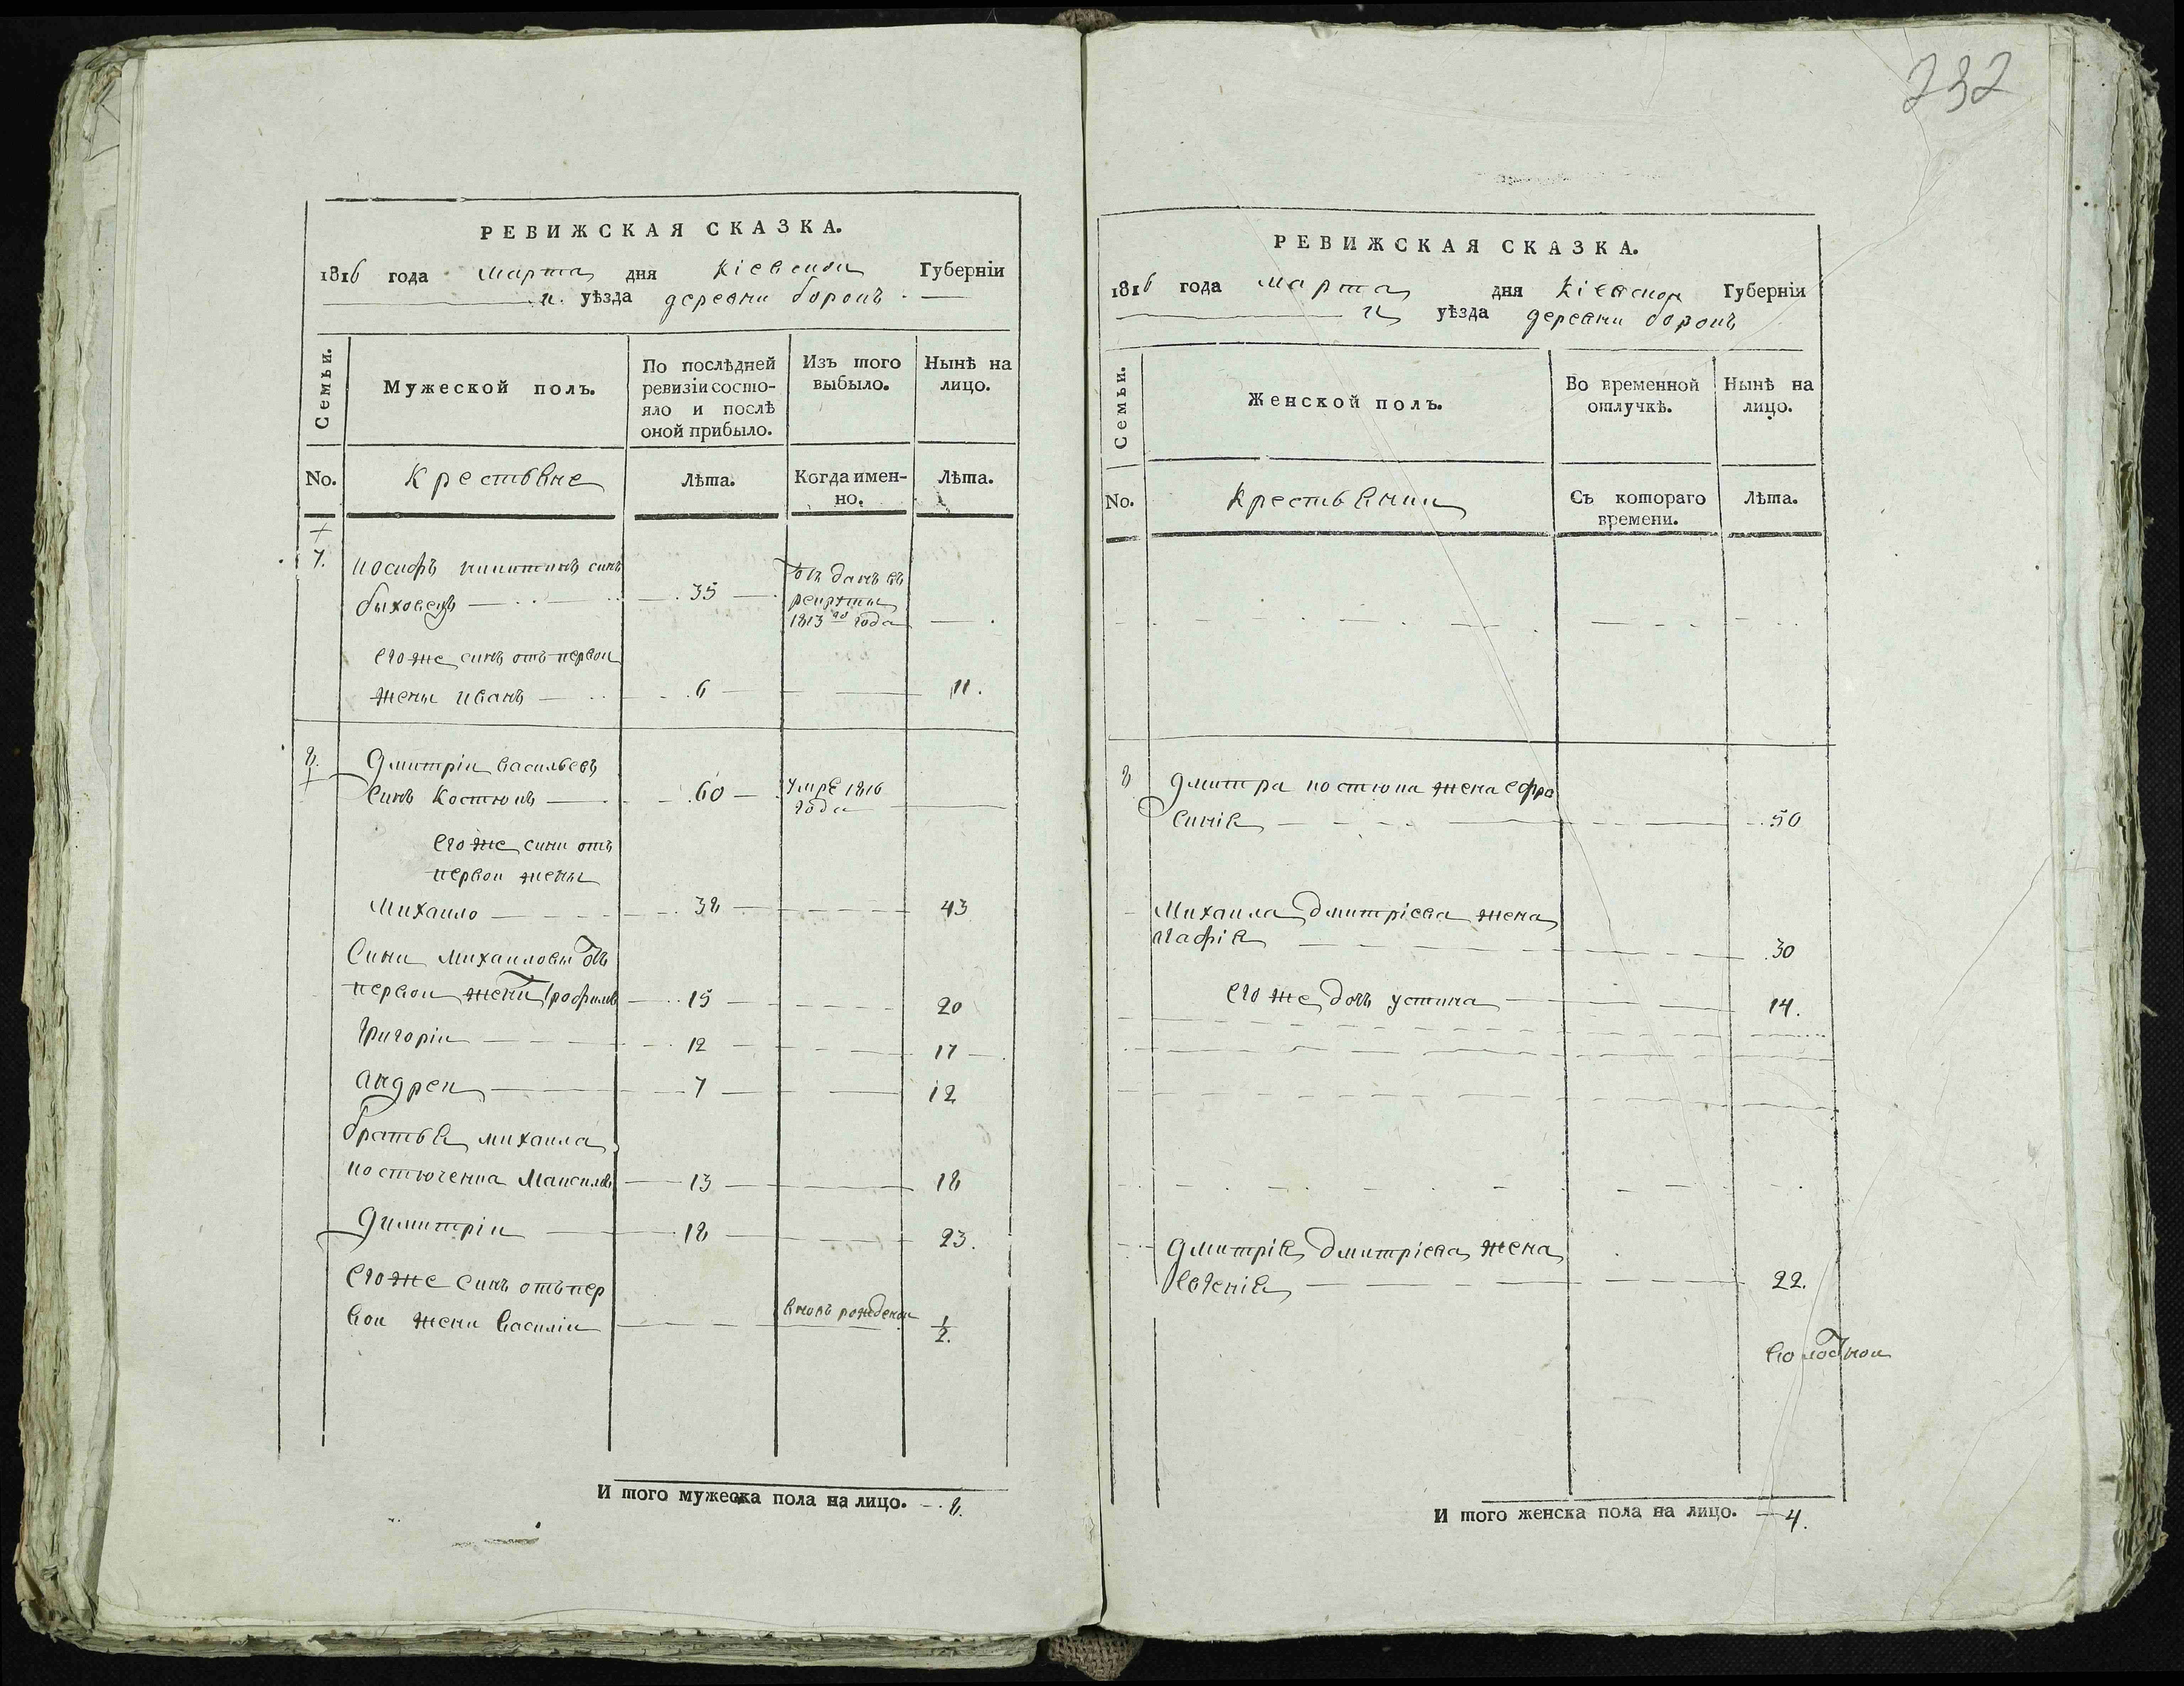 232
РЕВИЖСКАЯ СКАЗКА.
1816 года марта дня Кіевскои Губерніи
уѣзда деревни борокъ
Семьи.
Мужеской полъ.
По послѣдней
ревизіи состо-
яло и послѣ
оной прибыло.
Изъ того
выбыло.
Нынѣ на
лицо.
No.
Крестьяне
Лѣта.
Когда имен-
но.
Лѣта.
7. иосифъ никитинъ синъ
быховецъ 35 отданъ въ
рекруты
1813го года
егоже синъ отъ первои
жены иванъ 6 11.
8. Дмитріи васильевъ
синъ Костюкъ 60 умре 1816
года
егоже сини отъ
первои жены
Михаило 38 43
Сини михаиловы отъ
первои жени трофимъ 15 20
Григоріи 12 17
андреи 7 12
братья михаила
костюченка Максимъ 13 18
Димитріи 18 23.
егоже синъ отъ пер
вои жени василіи вновь рожденои 1/2.
И того мужеска пола на лицо. 8.
РЕВИЖСКАЯ СКАЗКА.
1816 года марта дня Кіевскои Губерніи
уѣзда деревни борокъ
Семьи.
Женской полъ.
Во временной
отлучкѣ.
Нынѣ на
лицо.
No.
Крестьянки
Съ котораго
времени.
Лѣта.
8 дмитра костюка жена ефро
синія 50
Михаила дмитріева жена
агафія 30
егоже дочь устина 14.
Дмитрія дмитріева жена
евгенія 22.
И того женска пола на лицо. 4.